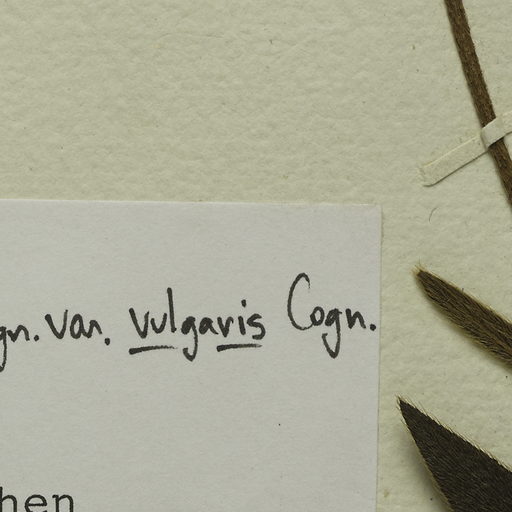 gn. var. vulgaris Cogn.
hen